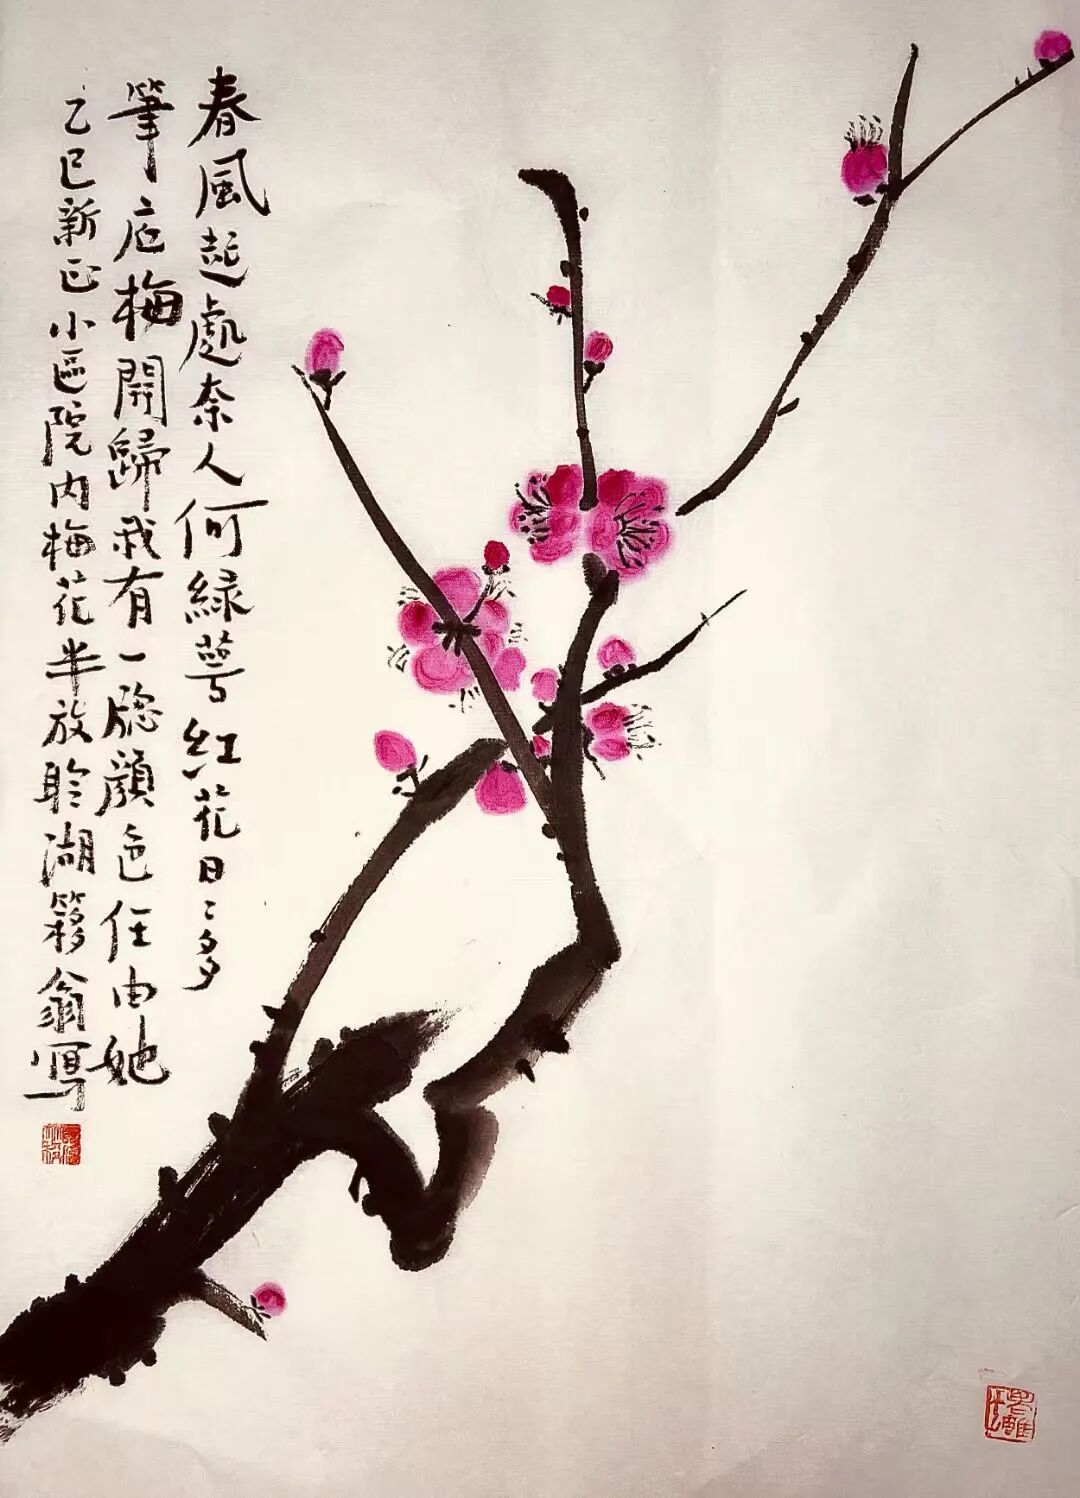 春風起處奈人何綠萼紅花日〻多
筆底梅開歸我有一牕顏色任由她
乙巳新正小區院内梅花半放聆湖簃翁寫